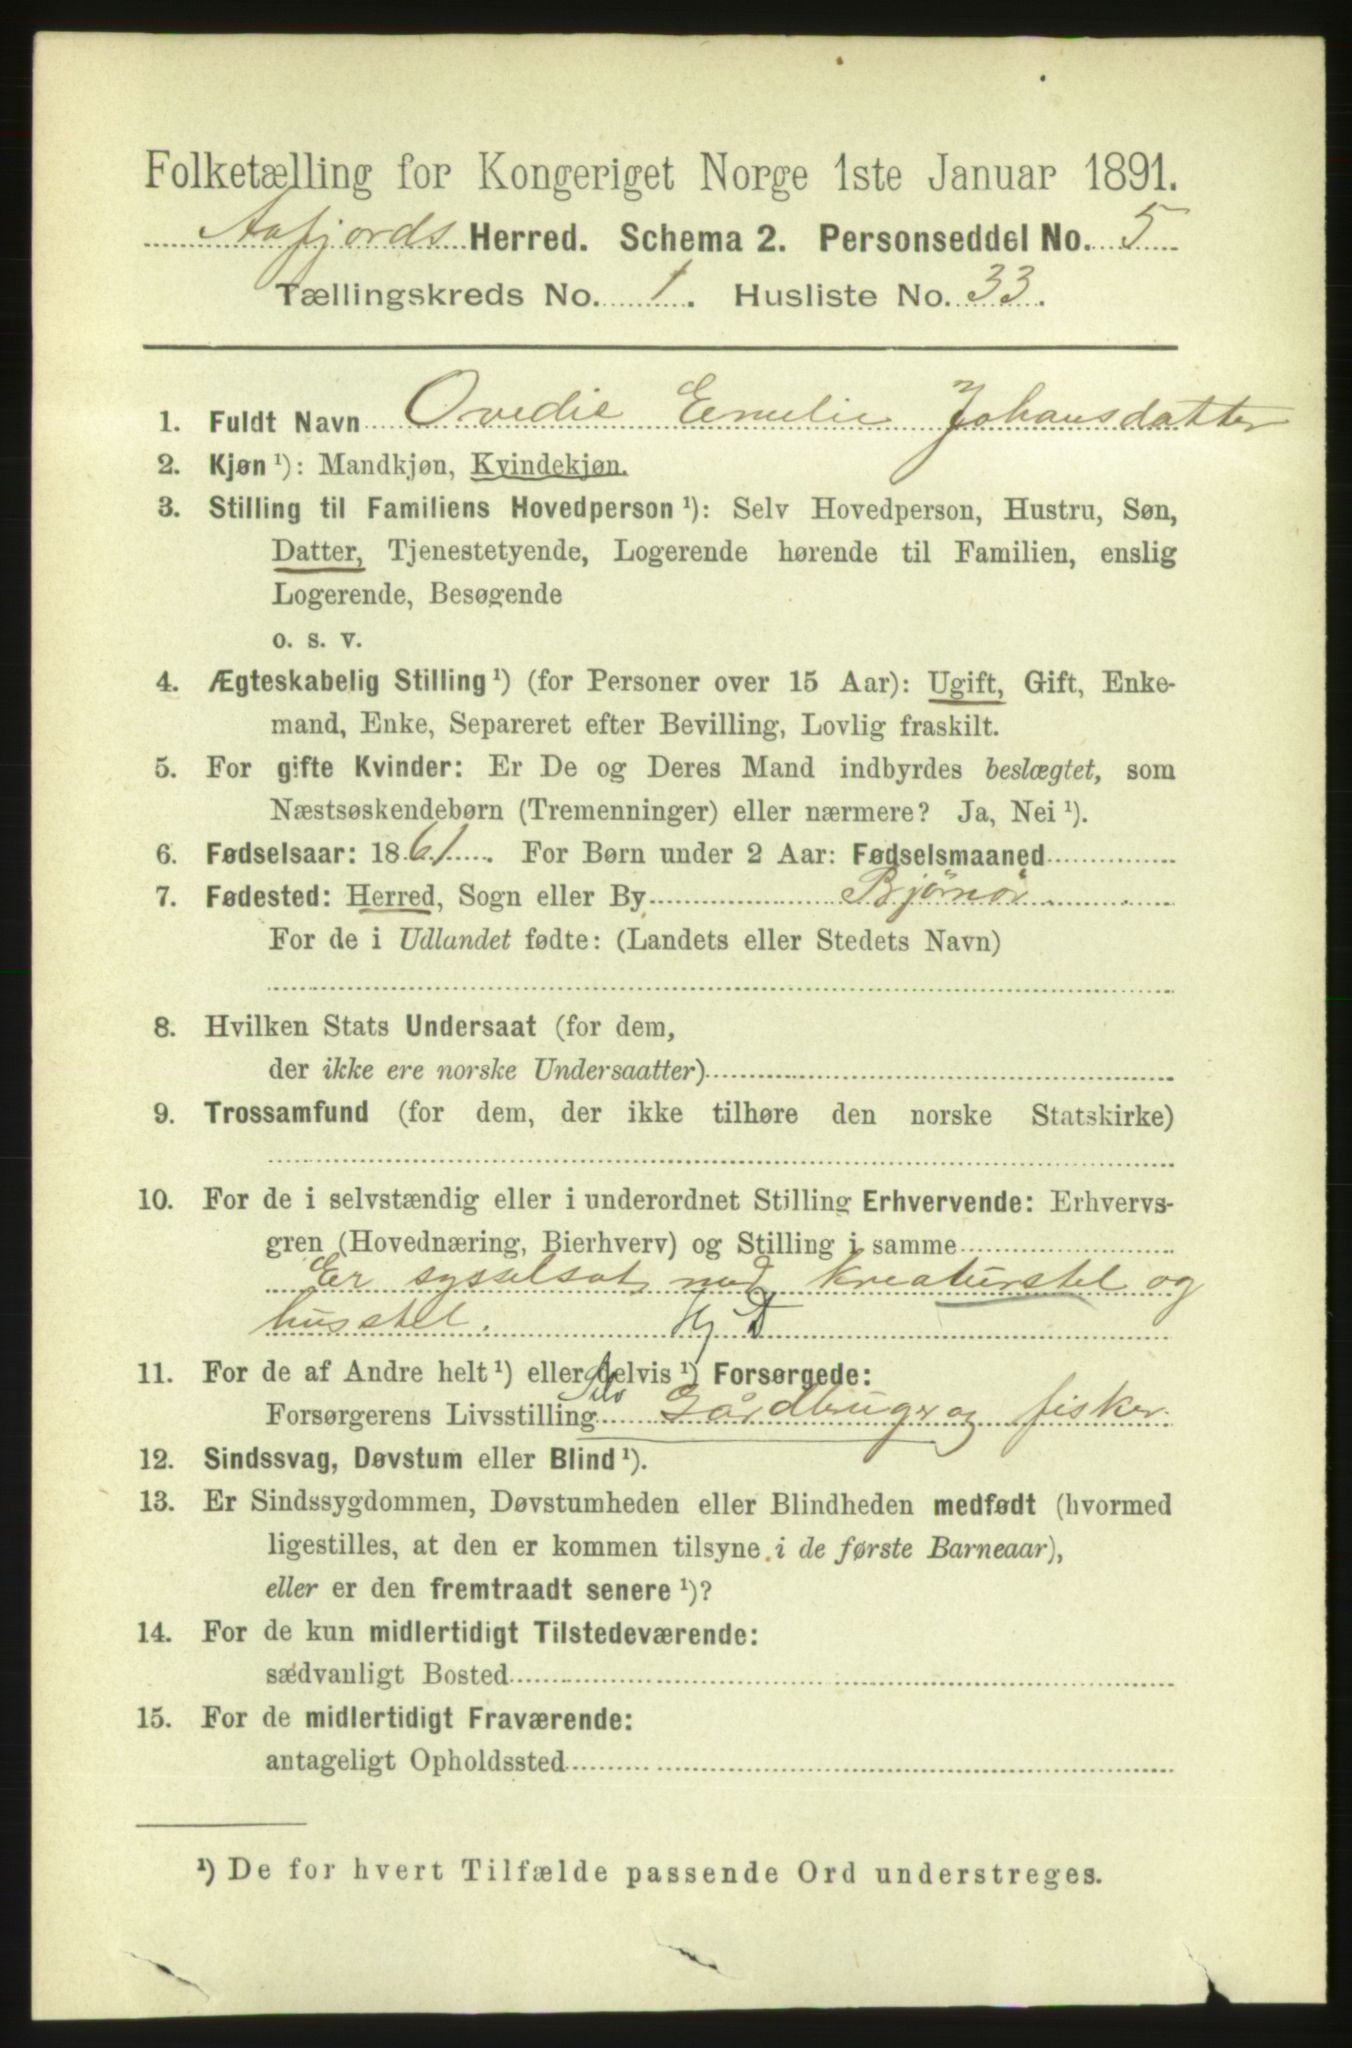 Folketælling for Kongeriget Norge 1ste Januar 1891.
Aafjords Herred. Schema 2. Personseddel No. 5
Tællingskreds No. 1. Husliste No. 33.
1. Fuldt Navn Ovedie Emelie Johansdatter
2. Kjøn ¹): Mandkjøn, Kvindekjøn.
3. Stilling til Familiens Hovedperson ¹): Selv Hovedperson, Hustru, Søn,
Datter, Tjenestetyende, Logerende hørende til Familien, enslig
Logerende, Besøgende
o. s. v.
4. Ægteskabelig Stilling ¹) (for Personer over 15 Aar): Ugift, Gift, Enke-
mand, Enke, Separeret efter Bevilling, Lovlig fraskilt.
5. For gifte Kvinder: Er De og Deres Mand indbyrdes beslægtet, som
Næstsøskendebørn (Tremenninger) eller nærmere? Ja, Nei ¹).
6. Fødselsaar: 1861. For Børn under 2 Aar: Fødselsmaaned
7. Fødested: Herred, Sogn eller By Bjørnør
For de i Udlandet fødte: (Landets eller Stedets Navn)
8. Hvilken Stats Undersaat (for dem,
der ikke ere norske Undersaatter)
9. Trossamfund (for dem, der ikke tilhøre den norske Statskirke)
10. For de i selvstændig eller i underordnet Stilling Erhvervende: Erhvervs-
gren (Hovednæring, Bierhverv) og Stilling i samme
Er sysselsat med kreaturstel og
husstel. Hj D
11. For de af Andre helt ¹) eller delvis ¹) Forsørgede:
Forsørgerens Livsstilling Selv Gårdbruger og fisker.
12. Sindssvag, Døvstum eller Blind ¹).
13. Er Sindssygdommen, Døvstumheden eller Blindheden medfødt (hvormed
ligestilles, at den er kommen tilsyne i de første Barneaar),
eller er den fremtraadt senere ¹)?
14. For de kun midlertidigt Tilstedeværende:
sædvanligt Bosted
15. For de midlertidigt Fraværende:
antageligt Opholdssted
¹) De for hvert Tilfælde passende Ord understreges.